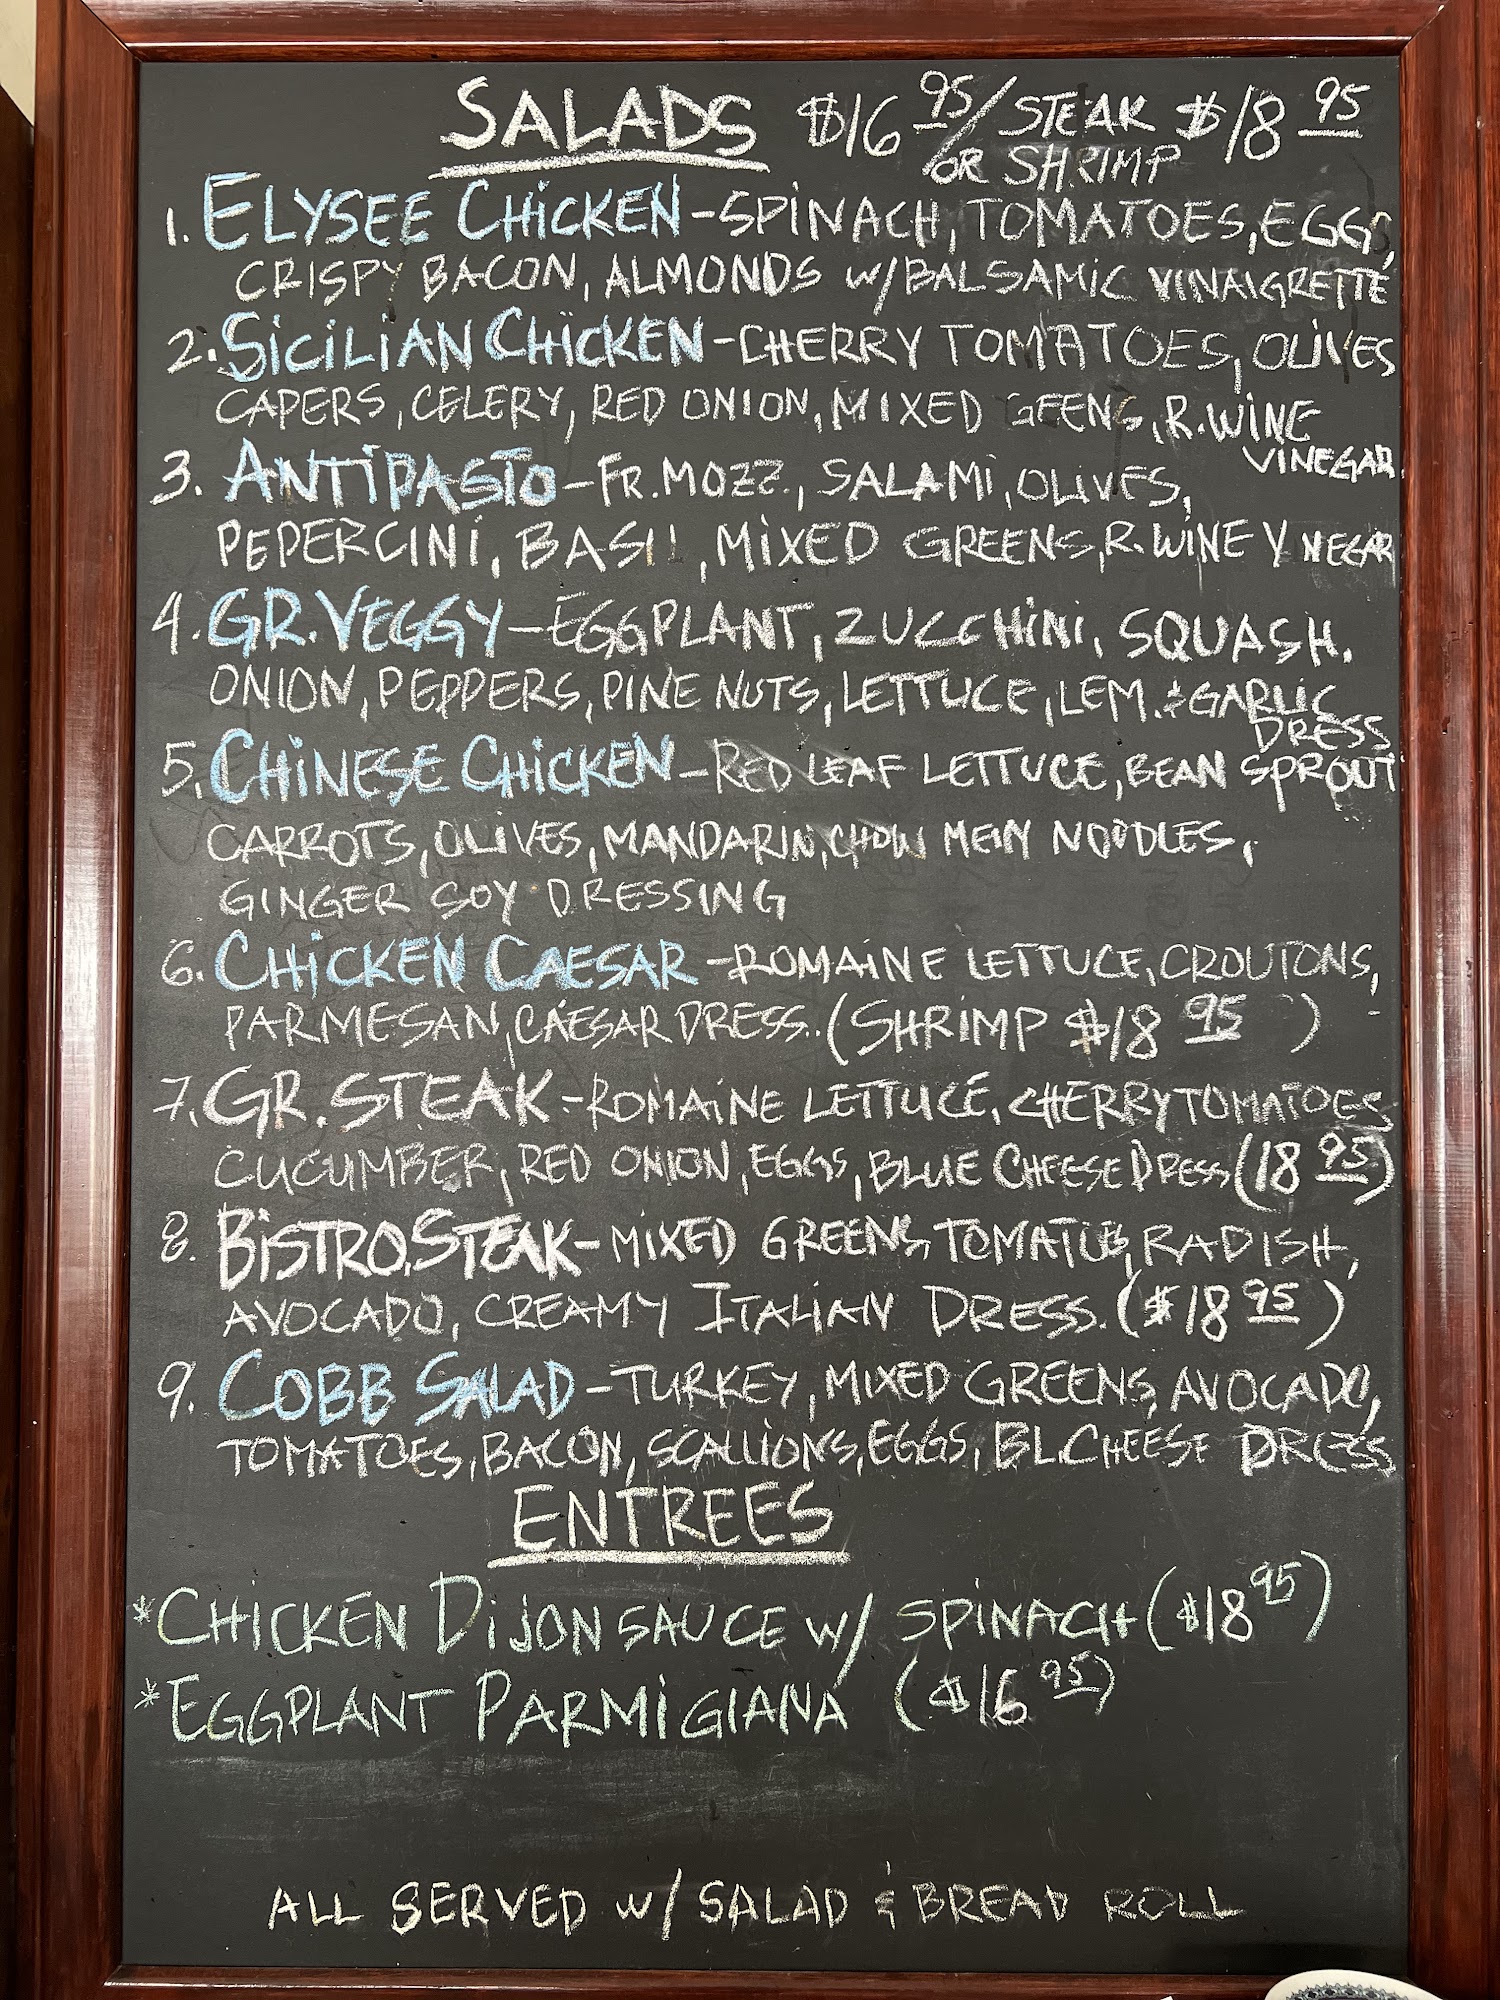 SALADS $16 95/ STEAK $18 95
OR SHRIMP
1. ELYSEE CHICKEN - SPINACH, TOMATOES, EGGS,
CRISPY BACON, ALMONDS W/ BALSAMIC VINAIGRETTE
2. SICILIAN CHICKEN - CHERRY TOMATOES, OLIVES
CAPERS, CELERY, RED ONION, MIXED GEENS, R. WINE
VINEGAR.
3. ANTIPASTO - FR. MOZZ., SALAMI, OLIVES,
PEPERCINI, BASIL, MIXED GREENS, R. WINE VINEGAR
4. GR. VEGGY - EGGPLANT, ZUCCHINI, SQUASH.
ONION, PEPPERS, PINE NUTS, LETTUCE, LEM. & GARLIC
DRESS
5. CHINESE CHICKEN - RED LEAF LETTUCE, BEAN SPROUT
CARROTS, OLIVES, MANDARIN, CHOW MEIN NOODLES,
GINGER SOY DRESSING
6. CHICKEN CAESAR - ROMAINE LETTUCE, CROUTONS,
PARMESAN, CAESAR DRESS. (SHRIMP $18 95 )
7. GR. STEAK - ROMAINE LETTUCE, CHERRY TOMATOES
CUCUMBER, RED ONION, EGGS, BLUE CHEESE DRESS (18 95)
8. BISTRO STEAK - MIXED GREENS, TOMATOES, RADISH,
AVOCADO, CREAMY ITALIAN DRESS. ($18 95 )
9. COBB SALAD - TURKEY, MIXED GREENS, AVOCADO,
TOMATOES, BACON, SCALLIONS, EGGS, BL. CHEESE DRESS
ENTREES
*CHICKEN DIJON SAUCE W/ SPINACH ($18 95)
*EGGPLANT PARMIGIANA ($16 95)
ALL SERVED W/ SALAD & BREAD ROLL